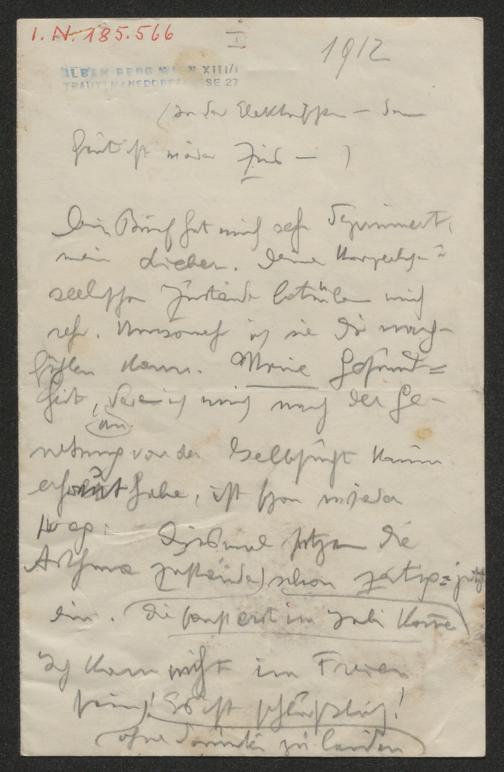 I. N. 185.566
I
1912
ALBAN BERG WIEN XIII/1
TRAUTTMANSDORFFGASSE 27
(In der Elektrischen —
ist wieder — )
Dein Brief hat mich sehr deprimiert,
mein Lieber. Deine körperlichen =
seelischen Zustände betrüben mich
sehr. Umsomehr ich sie Dir nach-
fühlen kann. Meine Gesund=
heit, deren ich mich nach der Ge-
an
nesung von der Gelbsucht kaum
erfreut habe, ist schon wieder
weg: Diesmal setzen die
Asthma zustände) schon zeitig =
ein. (Die sonst erst im Juli kommen)
Ich kann nicht im Freien
sein! Es ist schrecklich!
(ohne darunter zu leiden)